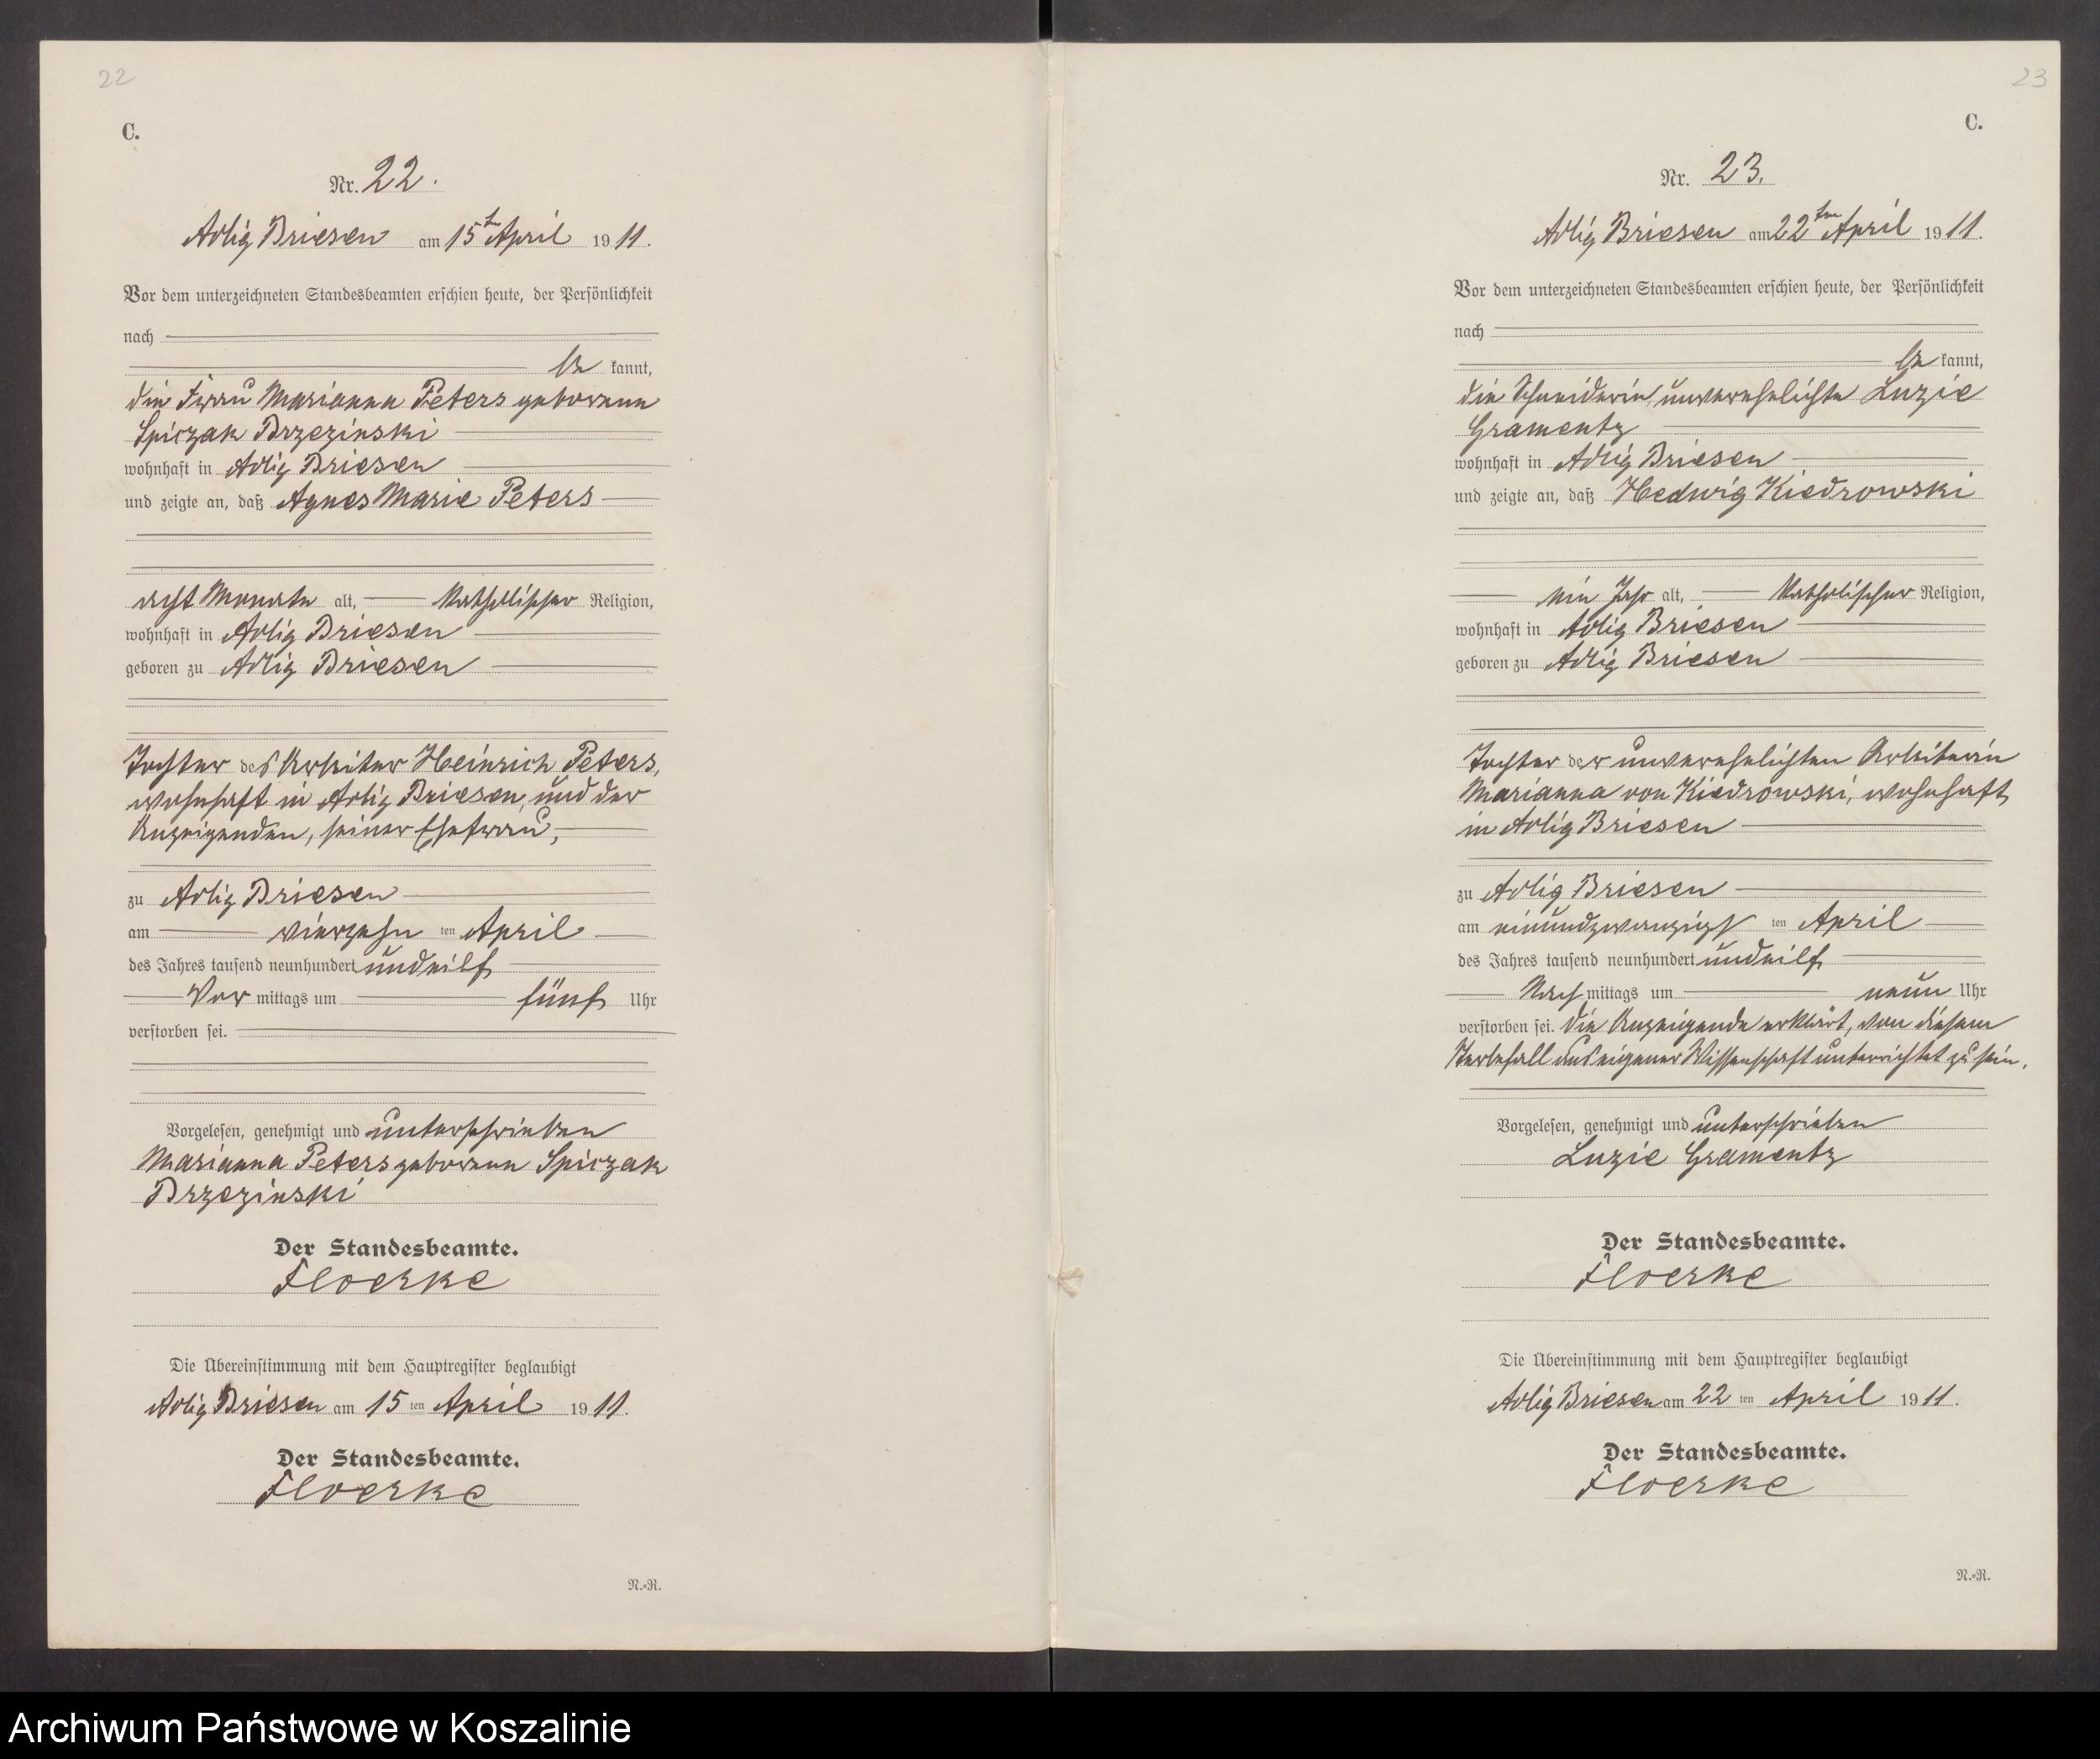 22
C.
Nr. 22.
Adlig Briesen am 15ten April 1911.
Vor dem unterzeichneten Standesbeamten erschien heute, der Persönlichkeit
nach
be kannt,
die Frau Marianna Peters geborene
Spiczak Brzezinski
wohnhaft in Adlig Briesen
und zeigte an, daß Agnes Marie Peters
acht Monate alt, katholischer Religion,
wohnhaft in Adlig Briesen
geboren zu Adlig Briesen
Tochter des Arbeiter Heinrich Peters,
wohnhaft in Adlig Briesen, und der
Anzeigenden, seiner Ehefrau,
zu Adlig Briesen
am vierzehn ten April
des Jahres tausend neunhundert undeilf
Vor mittags um fünf Uhr
verstorben sei.
Vorgelesen, genehmigt und unterschrieben
Marianna Peters geborene Spiczak
Brzezinski
Der Standesbeamte.
Floerke
Die Übereinstimmung mit dem Hauptregister beglaubigt
Adlig Briesen am 15 ten April 1911.
Der Standesbeamte.
Floerke
N.-R.
23
C.
Nr. 23.
Adlig Briesen am 22ten April 1911.
Vor dem unterzeichneten Standesbeamten erschien heute, der Persönlichkeit
nach
be kannt,
die Schneiderin, unverehelichte Luzie
Gramentz
wohnhaft in Adlig Briesen
und zeigte an, daß Hedwig Kiedrowski
ein Jahr alt, katholischer Religion,
wohnhaft in Adlig Briesen
geboren zu Adlig Briesen
Tochter der unverehelichten Arbeiterin
Marianna von Kiedrowski, wohnhaft
in Adlig Briesen
zu Adlig Briesen
am einundzwanzigs ten April
des Jahres tausend neunhundert undeilf
Nach mittags um neun Uhr
verstorben sei. Die Anzeigende erklärt, von diesem
Sterbefall aus eigener Wissenschaft unterrichtet zu sein.
Vorgelesen, genehmigt und unterschrieben
Luzie Gramentz
Der Standesbeamte.
Floerke
Die Übereinstimmung mit dem Hauptregister beglaubigt
Adlig Briesen am 22 ten April 1911.
Der Standesbeamte.
Floerke
N.-R.
Archiwum Państwowe w Koszalinie